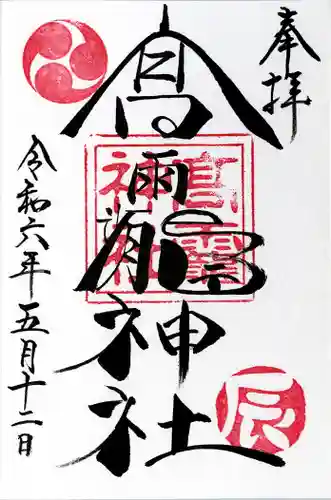 奉拝
髙靇神社
高靇
神社
令和六年五月十二日
辰